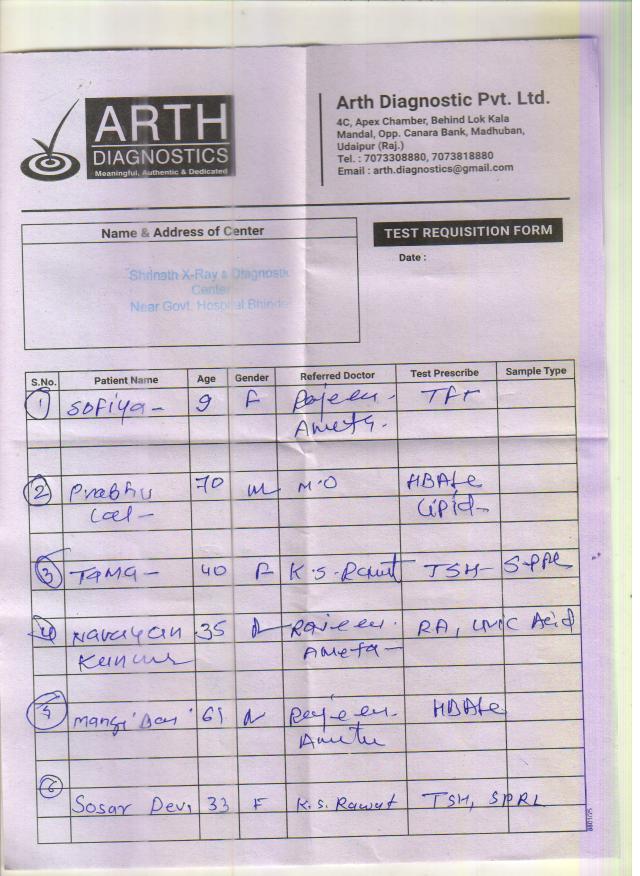 ARTH
DIAGNOSTICS
Meaningful, Authentic & Dedicated
Arth Diagnostic Pvt. Ltd.
4C, Apex Chamber, Behind Lok Kala
Mandal, Opp. Canara Bank, Madhuban,
Udaipur (Raj.)
Tel. : 7073308880, 7073818880
Email : arth.diagnostics@gmail.com
Name & Address of Center
TEST REQUISITION FORM
Shrinath X-Ray & Diagnostic
Center
Near Govt. Hospital Bhinder
Date :
S.No. Patient Name Age Gender Referred Doctor Test Prescribe Sample Type
1 Sofiya - 9 F Rajeev - TFT
Ameta -
2 Prabhu 70 M M.O HBA1c
Lal - Lipid -
3 Tama - 40 F K.S. Rawat TSH -
4 Narayan 35 Rajeev - RA, Uric Acid
Kunwar Ameta -
Mangi Bai 61 Rajeev - HBA1c
Ameta
6
Sosar Devi 33 F K.S. Rawat TSH, SPRL